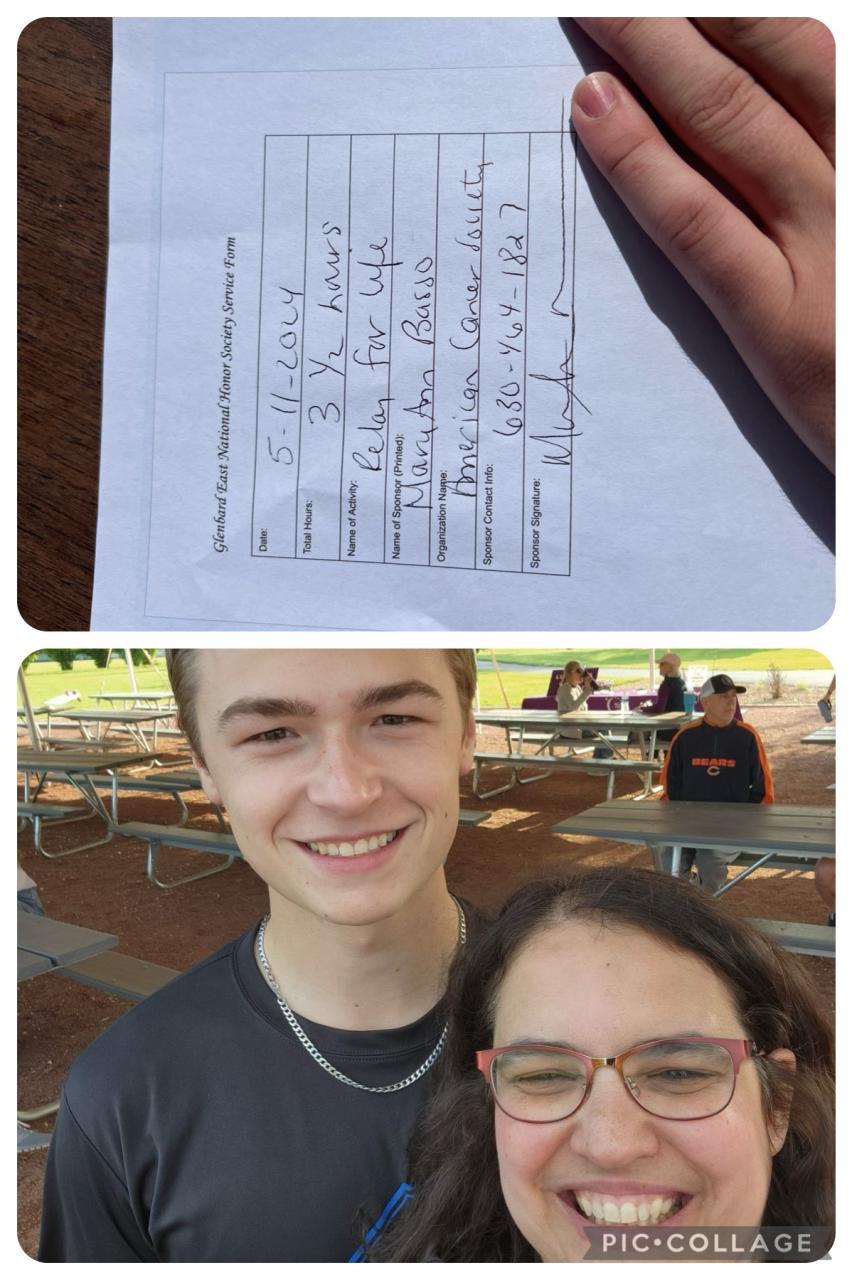 Glenbard East National Honor Society Service Form
Date: 5-11-2024
Total Hours: 3 1/2 hours
Name of Activity: Relay For Life
Name of Sponsor (Printed): MaryAnn Basso
Organization Name: American Cancer Society
Sponsor Contact Info: 630-464-1827
Sponsor Signature:
BEARS
C
PIC•COLLAGE